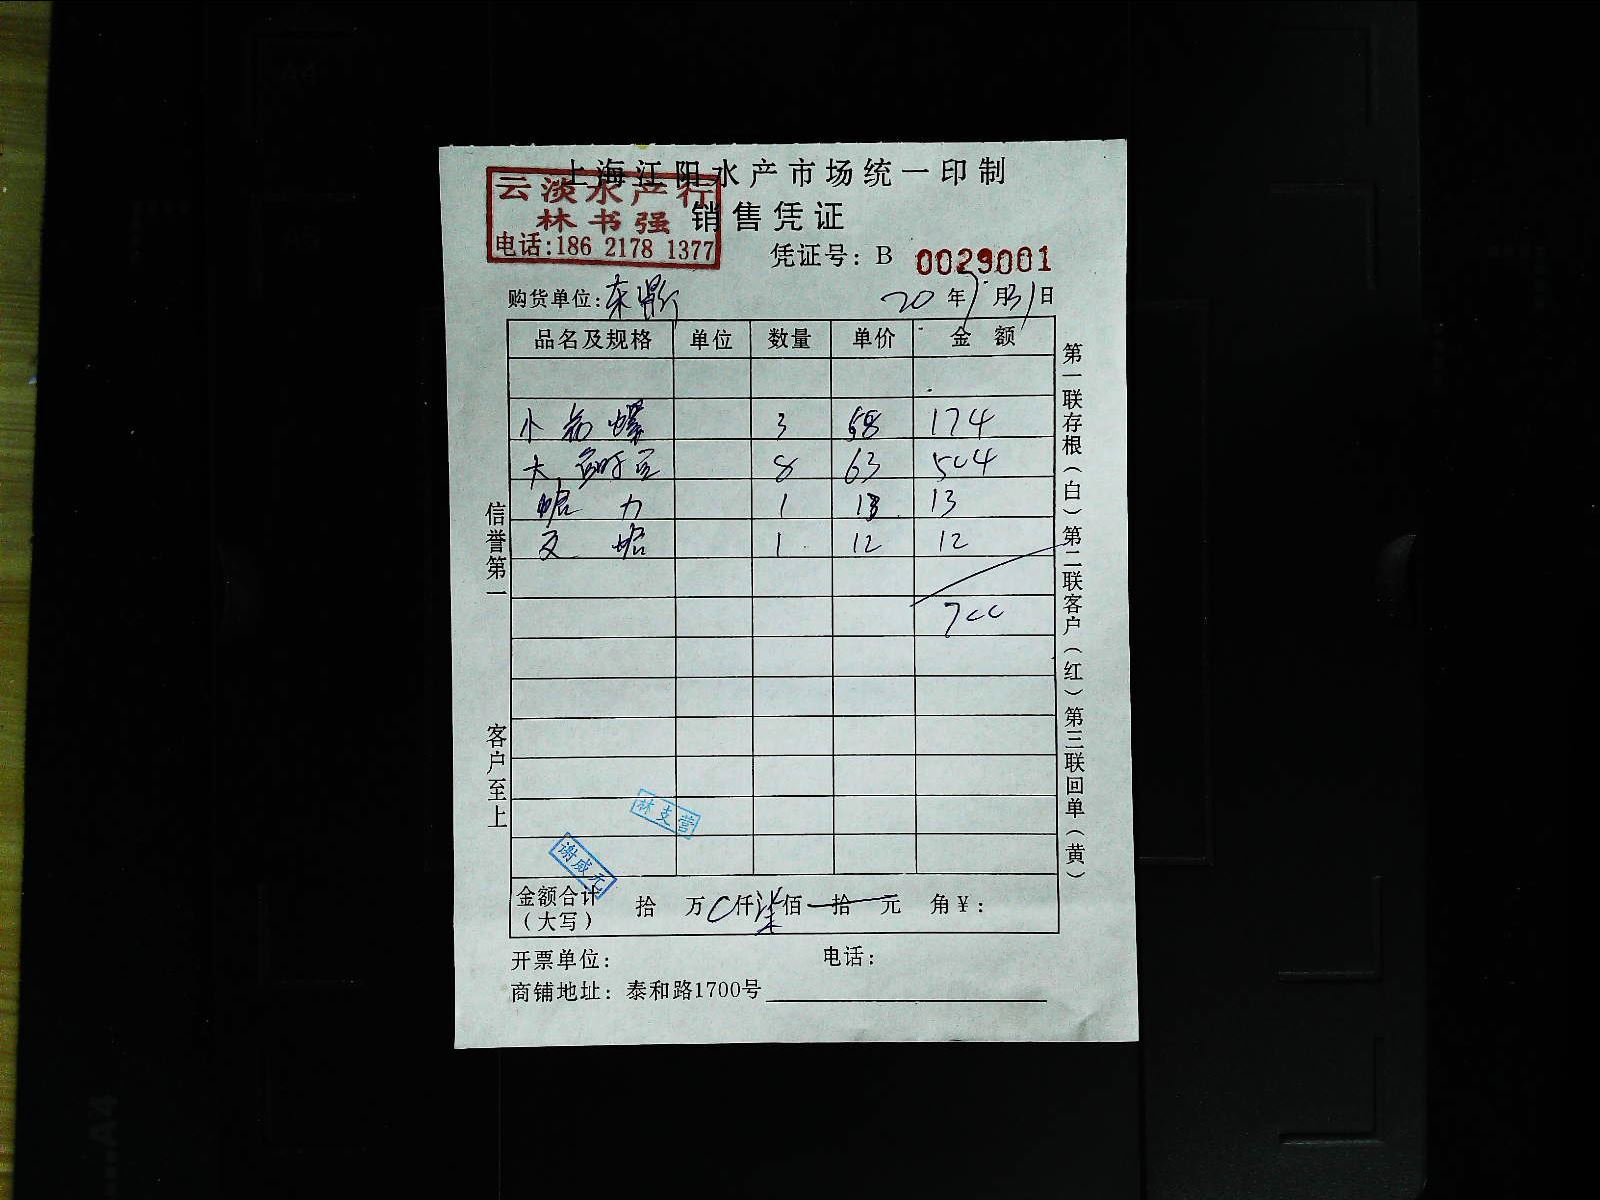 上海江阳水产市场统一印制
云淡水产行
林书强
电话:186 2178 1377
销售凭证
凭证号: B 0029001
购货单位: 20年 月31日
品名及规格 单位 数量 单价 金额
小 螺 3 58 174
大 8 63 504
蛤 1 13 13
文 蛤 1 12 12
700
林支营
谢成元
金额合计(大写) 拾 万 0仟柒佰 拾 元 角¥:
开票单位: 电话:
商铺地址: 泰和路1700号
信誉第一 客户至上
第一联存根(白) 第二联客户(红) 第三联回单(黄)